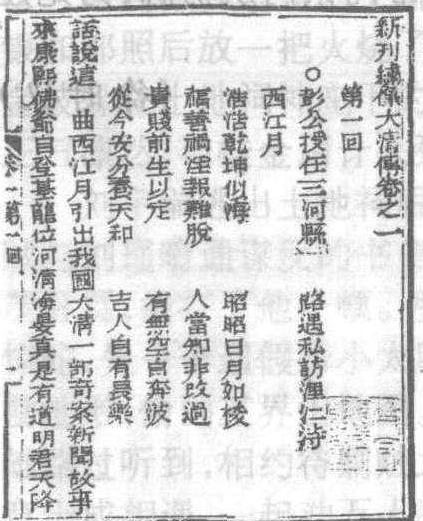 新刊繡像大清傳卷之一
第一回
○彭公授任三河縣 路遇私訪浬仁村
西江月
浩浩乾坤似海 昭昭日月如梭
福善禍淫報難脫 人當知非改過
貴賤前生以定 有無空自奔波
從今安分養天和 吉人自有長樂
話說這一曲西江月引出我國大清一部奇案新聞故事
來康熙佛爺自登基龍位河清海晏真是有道明君天降
第一回